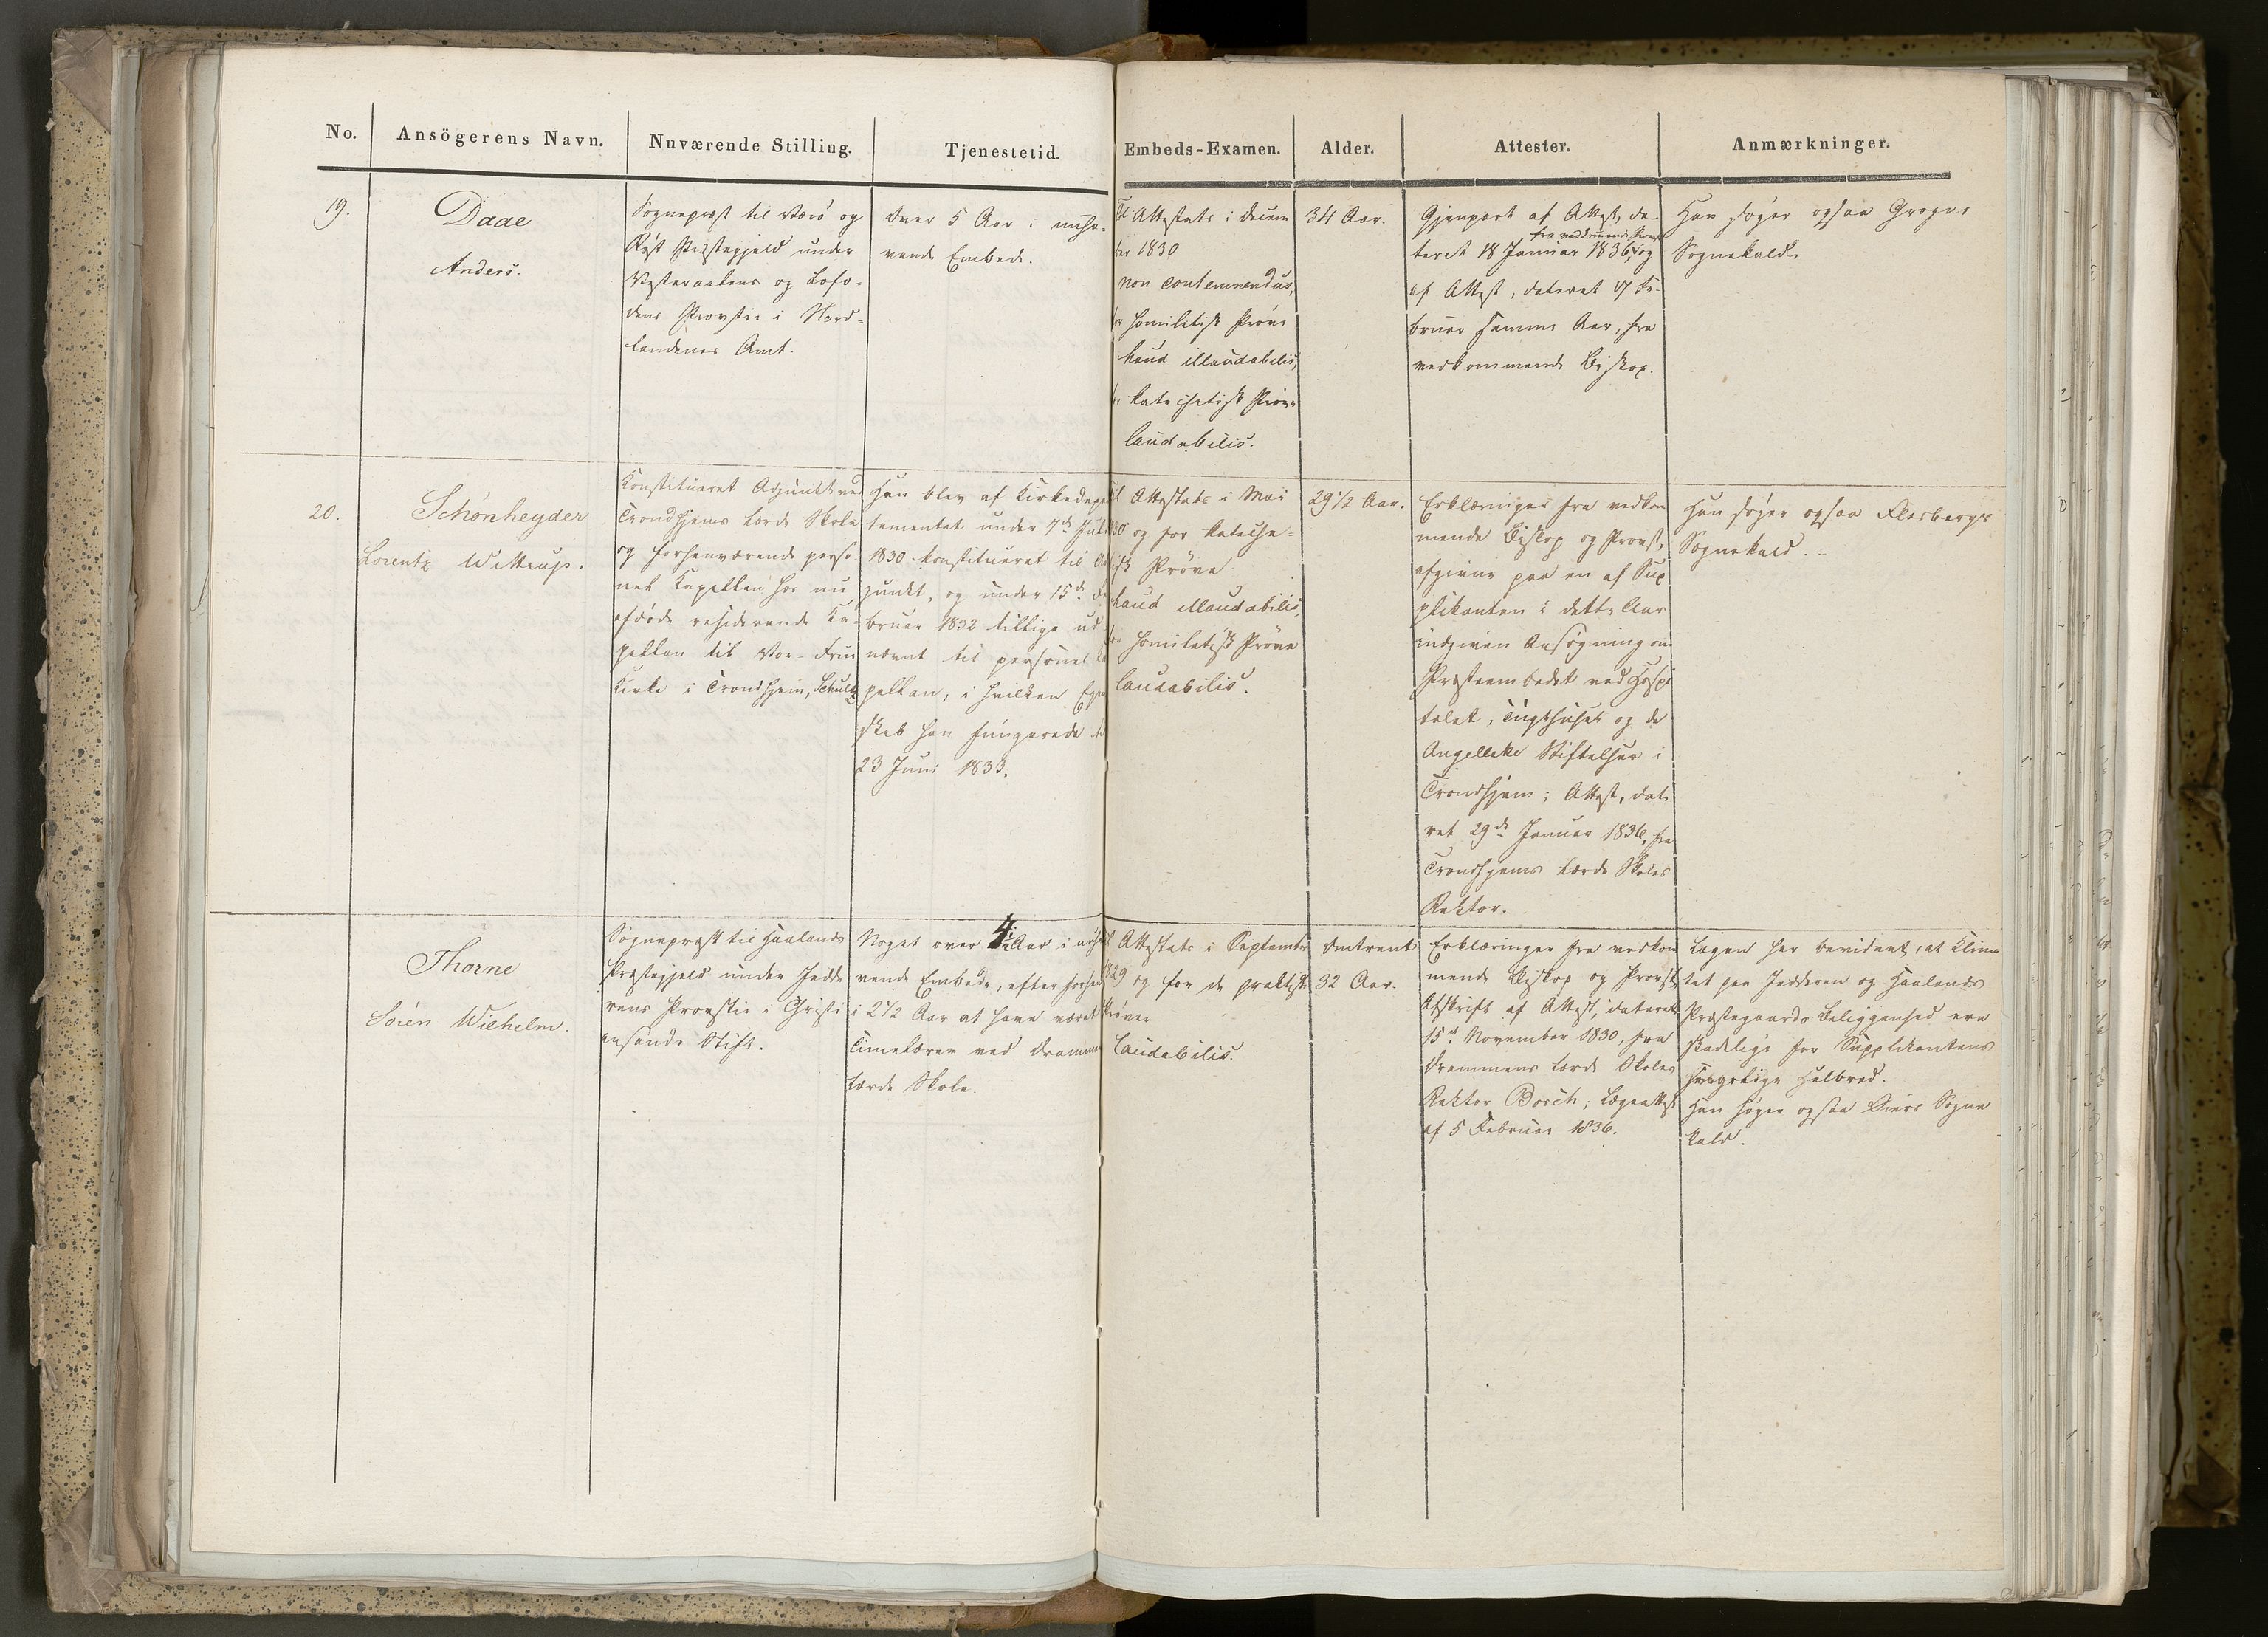 No.
Ansögerens Navn.
Nuværende Stilling.
Tjenestetid.
Embeds-Examen.
Alder.
Attester.
Anmærkninger.
19.
Daae
Anders.
Sognepræst til Værö og
Røst Præstegjeld under
Vesteraalens og Lofo-
dens Provstie i Nord-
landenes Amt.
Over 5 Aar i nuha-
vende Embede.
Til Attestats i Decem
ber 1830
non contemnendus,
for homiletisk Prøve
haud illaudabilis,
for katechetisk Prøve
laudabilis.
34 Aar.
Gjenpart af Attest, da-
teret 18 Januar 1836, fra vedkommende Provst, og
af Attest, dateret 17 Fe-
bruar samme Aar, fra
vedkommende Biskop.
Han søger ogsaa
Sognekald.
20.
Schönheyder
Lorentz Wittrup.
Konstitueret Adjunkt ved
Trondhjems lærde Skole
og forhenværende perso-
nel Kapellan hos nu
afdöde residerende Ka-
pellan til Vor-Frue
Kirke i Trondhjem, Schultz
Han blev af Kirkedepar
tementet under 7de Juli
1830 konstitueret til Ad
junkt, og under 15de Fe
bruar 1832 tillige ud
nævnt til personel Ka
pellan, i hvilken Egen
skab han fungerede til
23 Juni 1833.
Til Attestats i Mai
30 og for kateche-
tisk Prøve
haud illaudabilis,
for homiletisk Prøve
laudabilis.
29 1/2 Aar.
Erklæringer fra vedkom
mende Biskop og Provst,
afgivne paa en af Sup
plikanten i dette Aar
indgiven Ansøgning om
Præsteembedet ved Hospi
talet, Tugthuset og de
Angellske Stiftelser i
Trondhjem; Attest, date
ret 29de Januar 1836, fra
Trondhjems lærde Skoles
Rektor.
Han søger ogsaa Flesbergs
Sognekald.
Thorne
Sören Wilhelm.
Sognepræst til Haalands
Præstegjeld under Jedde
rens Provstie i Christi
ansands Stift.
Noget over 4 Aar i nuha
vende Embede, efter forhen
i 2 1/2 Aar at have været
Timelærer ved Drammens
lærde Skole.
Til Attestats i September
1829 og for de praktiske
Prøver
laudabilis.
Omtrent
32 Aar.
Erklæringer fra vedkom
mende Biskop og Provst;
Afskrift af Attest, dateret
15de November 1830, fra
Drammens lærde Skoles
Rektor Borch; Lægeattest
af 5 Februar 1836.
Lægen har bevidnet, at Klima
tet paa Jedderen og Haalands
Præstegaards Beliggenhed ere
skadelige for Supplikantens
svagelige Helbred.
Han søger ogsaa Eiers Sogne
kald.